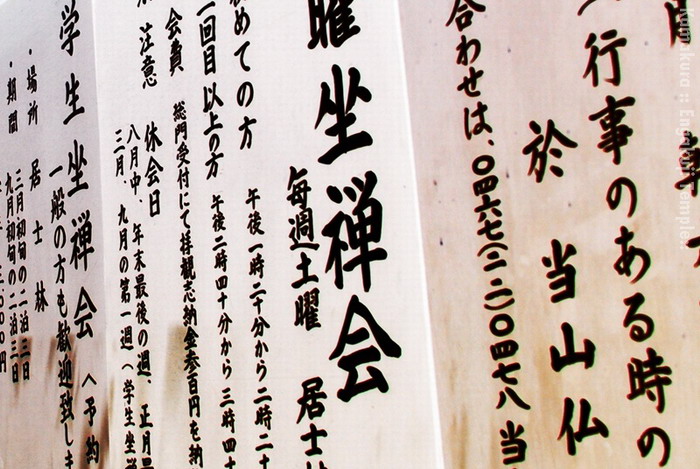 行事のある時の
於 当山仏
合わせは、〇四六七(二二)〇四七八 当
曜坐禅会
毎週土曜 居士
めての方 午後一時二十分から二時二十
二回目以上の方 午後二時四十分から三時四十
会費 総門受付にて拝観志納金参百円を納
注意 休会日
八月中、年末最後の週、正月
三月、九月の第一週(学生坐
学生坐禅会 (予約
一般の方も歓迎致しま
・場所 居士林
・期間 三月初旬の二泊三日
九月初旬の二泊三日
〇〇円
Kamakura :: Engakuji Temple::